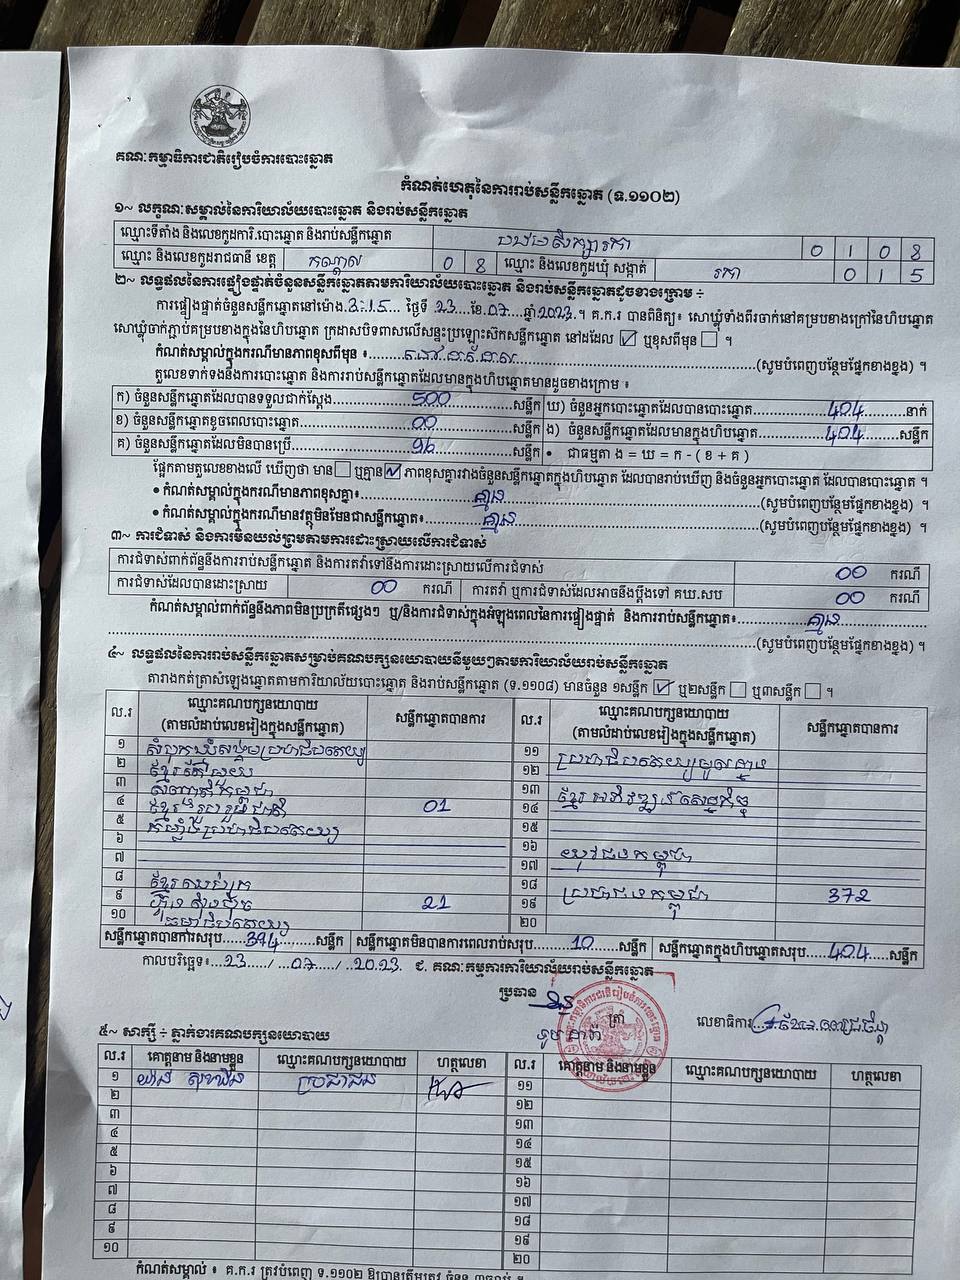 គណៈកម្មាធិការជាតិរៀបចំការបោះឆ្នោត
កំណត់ហេតុនៃការរាប់សន្លឹកឆ្នោត (ទ.១១០២)
១~ លក្ខណៈសម្គាល់នៃការិយាល័យបោះឆ្នោត និងរាប់សន្លឹកឆ្នោត
ឈ្មោះទីតាំង និងលេខកូដការិ.បោះឆ្នោត និងរាប់សន្លឹកឆ្នោត 0 1 0 8
ឈ្មោះ និងលេខកូដរាជធានី ខេត្ត កណ្តាល 0 8 ឈ្មោះ និងលេខកូដឃុំ សង្កាត់ រកា 0 1 5
២~ លទ្ធផលនៃការផ្ទៀងផ្ទាត់ចំនួនសន្លឹកឆ្នោតតាមការិយាល័យបោះឆ្នោត និងរាប់សន្លឹកឆ្នោតដូចខាងក្រោម ÷
ការផ្ទៀងផ្ទាត់ចំនួនសន្លឹកឆ្នោតនៅម៉ោង 3:15 ថ្ងៃទី 23 ខែ 07 ឆ្នាំ 2023 ។ គ.ក.រ បានពិនិត្យ៖ សោឃ្លុំទាំងពីរចាក់នៅគម្របខាងក្រៅនៃហិបឆ្នោត
សោឃ្លុំចាក់ភ្ជាប់គម្របខាងក្នុងនៃហិបឆ្នោត ក្រដាសបិទពាសលើសន្ទះប្រឡោះស៊កសន្លឹកឆ្នោត នៅដដែល ☑ ឬខុសពីមុន ☐ ។
កំណត់សម្គាល់ក្នុងករណីមានភាពខុសពីមុន ៖ (សូមបំពេញបន្ថែមផ្នែកខាងខ្នង) ។
តួលេខទាក់ទងនឹងការបោះឆ្នោត និងការរាប់សន្លឹកឆ្នោតដែលមានក្នុងហិបឆ្នោតមានដូចខាងក្រោម ៖
ក) ចំនួនសន្លឹកឆ្នោតដែលបានទទួលជាក់ស្តែង 500 សន្លឹក ឃ) ចំនួនអ្នកបោះឆ្នោតដែលបានបោះឆ្នោត 404 នាក់
ខ) ចំនួនសន្លឹកឆ្នោតខូចពេលបោះឆ្នោត 00 សន្លឹក ង) ចំនួនសន្លឹកឆ្នោតដែលមានក្នុងហិបឆ្នោត 404 សន្លឹក
គ) ចំនួនសន្លឹកឆ្នោតដែលមិនបានប្រើ 96 សន្លឹក • ជាធម្មតា ង = ឃ = ក - ( ខ + គ )
ផ្អែកតាមតួលេខខាងលើ ឃើញថា មាន ☐ ឬគ្មាន ☑ ភាពខុសគ្នារវាងចំនួនសន្លឹកឆ្នោតក្នុងហិបឆ្នោត ដែលបានរាប់ឃើញ និងចំនួនអ្នកបោះឆ្នោត ដែលបានបោះឆ្នោត ។
• កំណត់សម្គាល់ក្នុងករណីមានភាពខុសគ្នា៖ គ្មាន (សូមបំពេញបន្ថែមផ្នែកខាងខ្នង) ។
• កំណត់សម្គាល់ក្នុងករណីមានវត្ថុមិនមែនជាសន្លឹកឆ្នោត៖ គ្មាន (សូមបំពេញបន្ថែមផ្នែកខាងខ្នង) ។
៣~ ការជំទាស់ និងការមិនយល់ព្រមតាមការដោះស្រាយលើការជំទាស់
ការជំទាស់ពាក់ព័ន្ធនឹងការរាប់សន្លឹកឆ្នោត និងការតវ៉ាទៅនឹងការដោះស្រាយលើការជំទាស់ 00 ករណី
ការជំទាស់ដែលបានដោះស្រាយ 00 ករណី ការតវ៉ា ឬការជំទាស់ដែលអាចនឹងប្តឹងទៅ គឃ.សប 00 ករណី
កំណត់សម្គាល់ពាក់ព័ន្ធនឹងភាពមិនប្រក្រតីផ្សេងៗ ឬ/និងការជំទាស់ក្នុងអំឡុងពេលនៃការផ្ទៀងផ្ទាត់ និងការរាប់សន្លឹកឆ្នោត៖ គ្មាន
(សូមបំពេញបន្ថែមផ្នែកខាងខ្នង) ។
៤~ លទ្ធផលនៃការរាប់សន្លឹកឆ្នោតសម្រាប់គណបក្សនយោបាយនីមួយៗតាមការិយាល័យរាប់សន្លឹកឆ្នោត
តារាងកត់ត្រាសំឡេងឆ្នោតតាមការិយាល័យបោះឆ្នោត និងរាប់សន្លឹកឆ្នោត (ទ.១១០៨) មានចំនួន ១សន្លឹក ☑ ឬ២សន្លឹក ☐ ឬ៣សន្លឹក ☐ ។
ល.រ ឈ្មោះគណបក្សនយោបាយ (តាមលំដាប់លេខរៀងក្នុងសន្លឹកឆ្នោត) សន្លឹកឆ្នោតបានការ ល.រ ឈ្មោះគណបក្សនយោបាយ (តាមលំដាប់លេខរៀងក្នុងសន្លឹកឆ្នោត) សន្លឹកឆ្នោតបានការ
១ សំបុកឃ្មុំសង្គមប្រជាធិបតេយ្យ ១១
២ ខ្មែរតែមួយ ១២ ប្រជាធិបតេយ្យមូលដ្ឋាន
៣ សញ្ជាតិកម្ពុជា ១៣
៤ ខ្មែររួបរួមជាតិ 01 ១៤ ខ្មែរអភិវឌ្ឍន៍សេដ្ឋកិច្ច
៥ កម្លាំងប្រជាធិបតេយ្យ ១៥
៦ ១៦
៧ ១៧ យុវជនកម្ពុជា
៨ ខ្មែរឈប់ក្រ ១៨
៩ ហ៊្វុនស៊ិនប៉ិច 21 ១៩ ប្រជាជនកម្ពុជា 372
១០ ធម្មាធិបតេយ្យ ២០
សន្លឹកឆ្នោតបានការសរុប 394 សន្លឹក សន្លឹកឆ្នោតមិនបានការពេលរាប់សរុប 10 សន្លឹក សន្លឹកឆ្នោតក្នុងហិបឆ្នោតសរុប 404 សន្លឹក
កាលបរិច្ឆេទ៖ 23 / 07 / 2023 ជ. គណៈកម្មការការិយាល័យរាប់សន្លឹកឆ្នោត
ប្រធាន
ត្រា
លេខាធិការ
៥~ សាក្សី ÷ ភ្នាក់ងារគណបក្សនយោបាយ
ល.រ គោត្តនាម និងនាមខ្លួន ឈ្មោះគណបក្សនយោបាយ ហត្ថលេខា ល.រ គោត្តនាម និងនាមខ្លួន ឈ្មោះគណបក្សនយោបាយ ហត្ថលេខា
១ ប្រជាជន ១១
២ ១២
៣ ១៣
៤ ១៤
៥ ១៥
៦ ១៦
៧ ១៧
៨ ១៨
៩ ១៩
១០ ២០
កំណត់សម្គាល់ ៖ គ.ក.រ ត្រូវបំពេញ ទ.១១០២ ឱ្យបានត្រឹមត្រូវ ចំនួន ៣ច្បាប់ ។